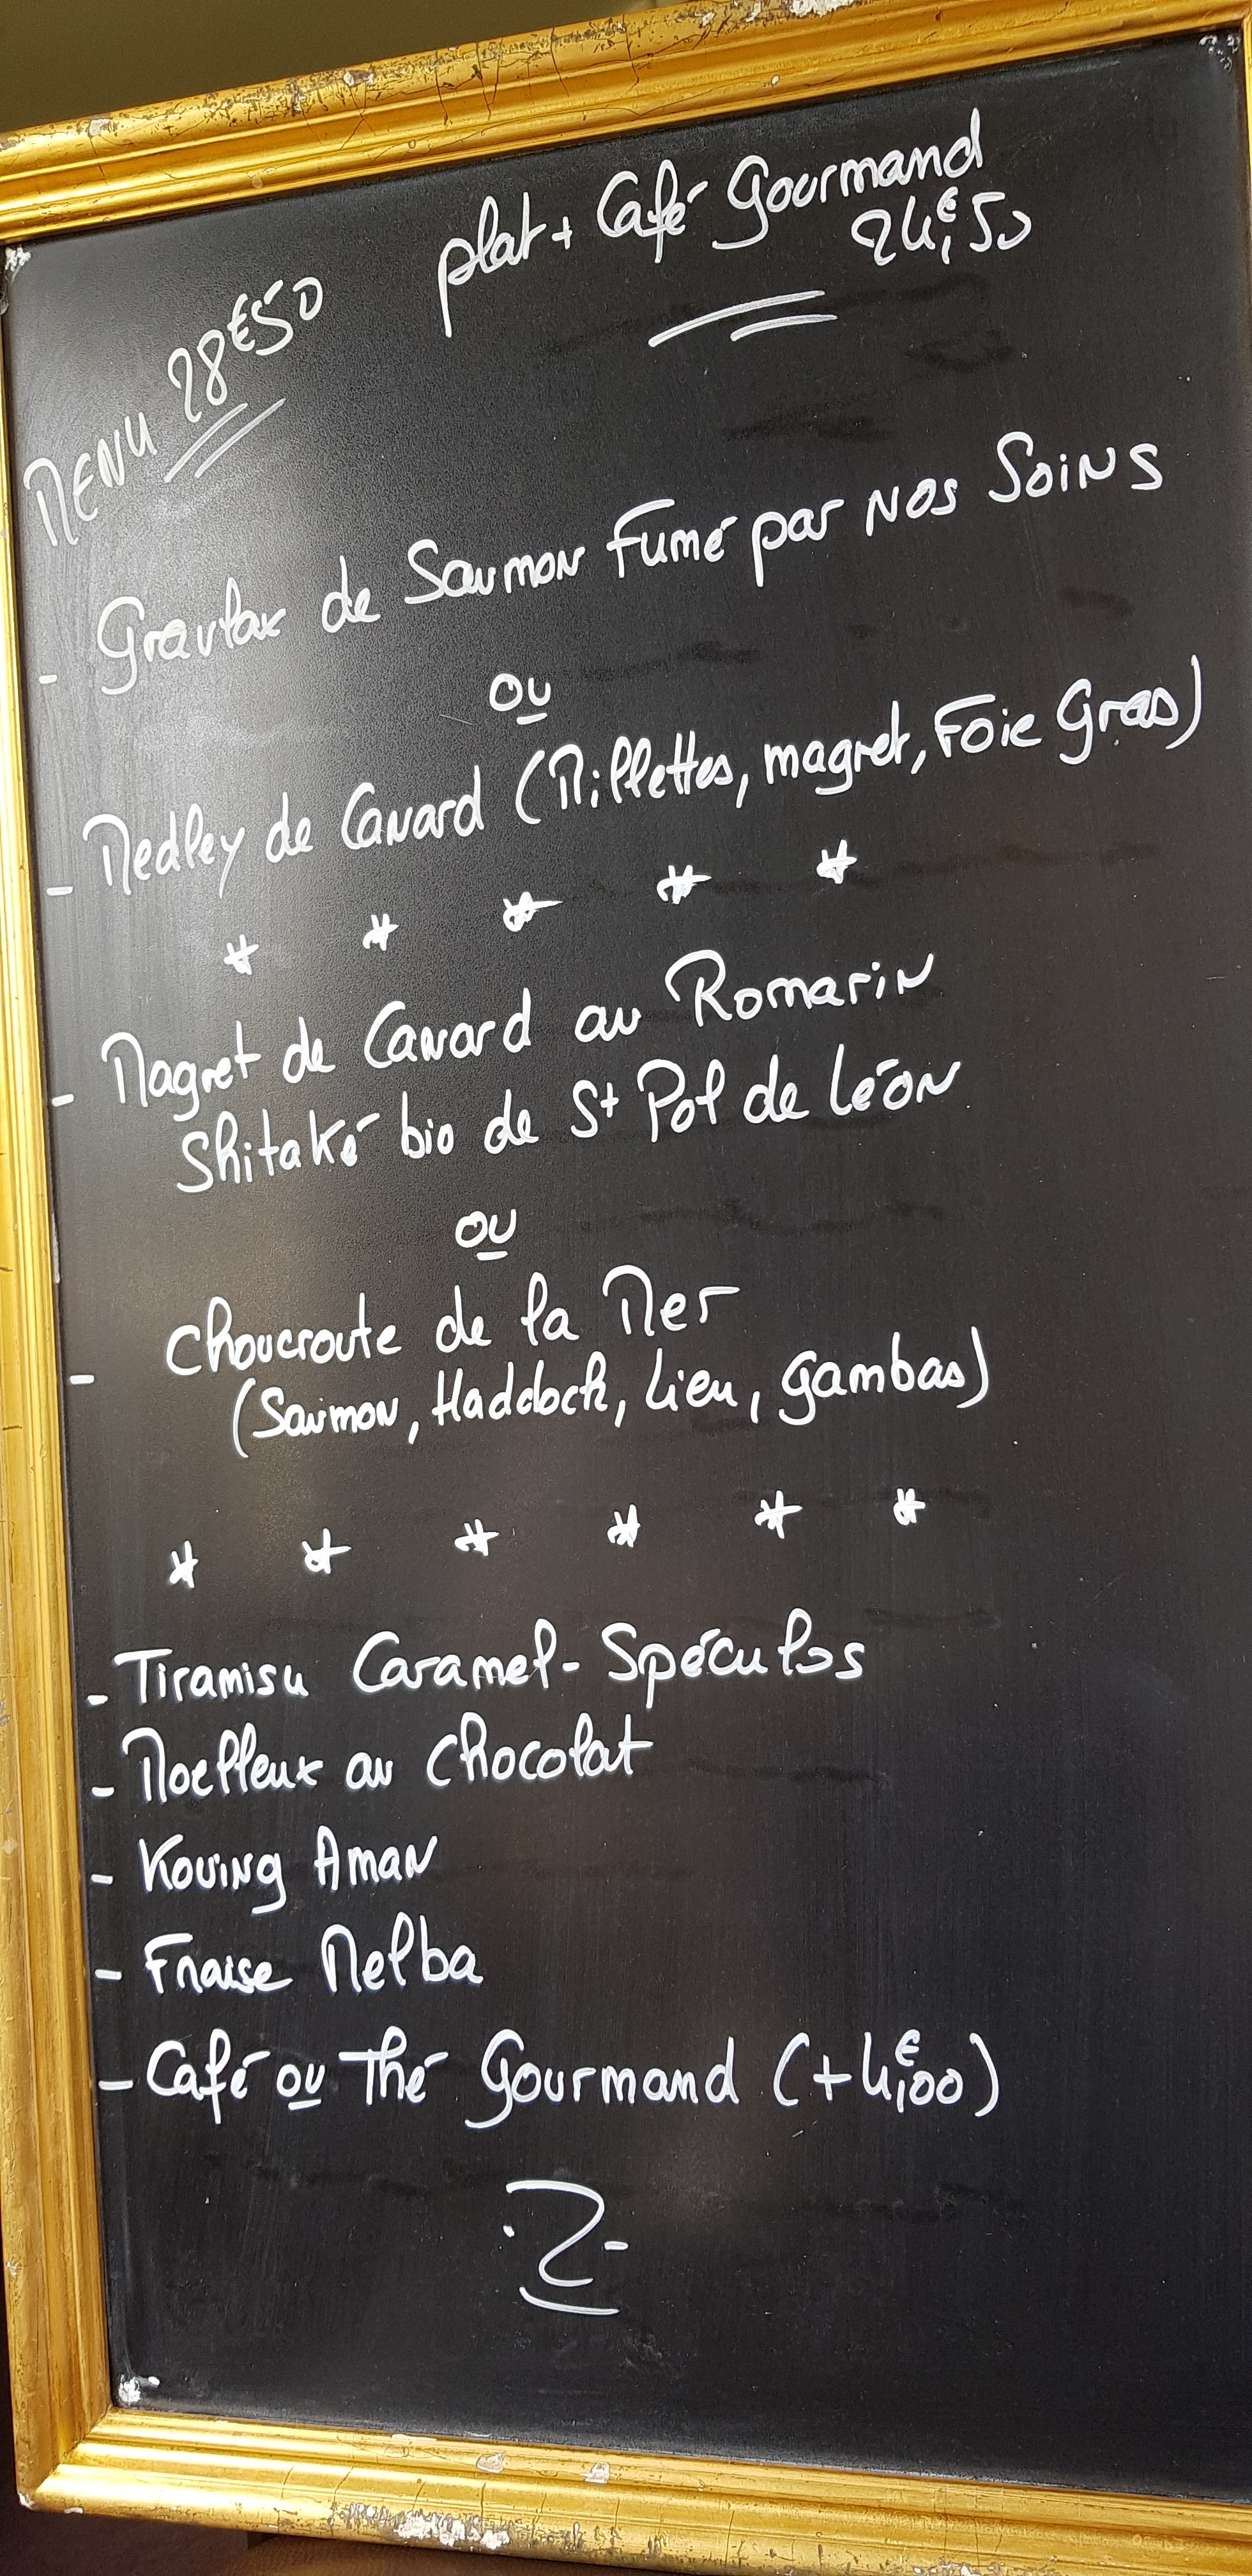 MENU 28€50
plat + Café Gourmand
24,€50
- Gravlax de Saumon Fumé par nos Soins
ou
- Medley de Canard (Rillettes, magret, Foie Gras)
* * * * *
- Magret de Canard au Romarin
Shitaké bio de St Pol de Léon
ou
- Choucroute de la Mer
(Saumon, Haddock, Lieu, gambas)
* * * * * *
- Tiramisu Caramel - Spéculos
- Moelleux au Chocolat
- Kouing Aman
- Fraise Melba
- Café ou Thé Gourmand (+4,€00)